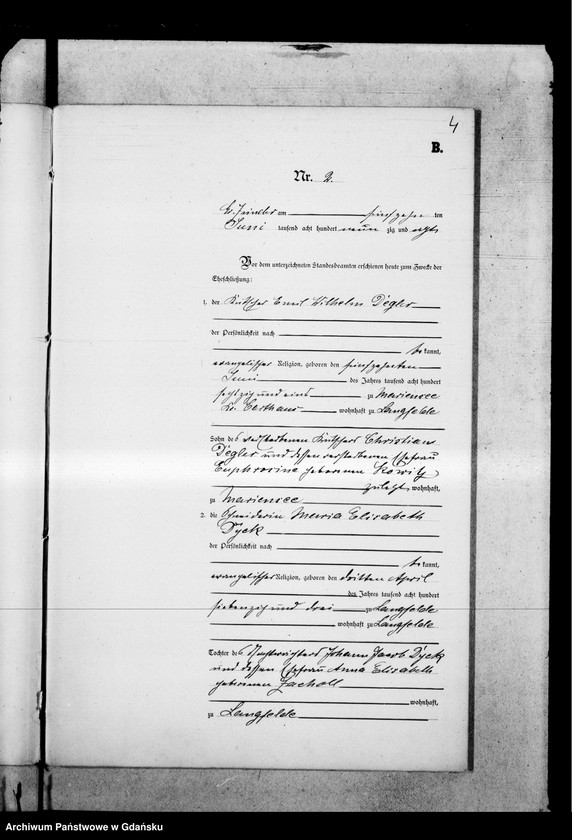 4
B.
Nr. 2.
am fünfzehn ten
Juni tausend acht hundert neun zig und acht
Vor dem unterzeichneten Standesbeamten erschienen heute zum Zwecke der
Eheschließung:
1. der Kutscher Emil Wilhelm Degler
der Persönlichkeit nach
be kannt,
evangelischer Religion, geboren den fünfzehnten
Juni des Jahres tausend acht hundert
sechszig und eins zu Mariensee
Kr. Carthaus wohnhaft zu Langfelde
Sohn des verstorbenen Kutschers Christian
Degler und dessen verstorbenen Ehefrau
Euphrosine geborenen
zuletzt wohnhaft,
zu Mariensee
2. die Schneiderin Maria Elisabeth
Dyck
der Persönlichkeit nach
be kannt,
evangelischer Religion, geboren den dritten April
des Jahres tausend acht hundert
siebenzig und drei zu Langfelde
wohnhaft zu Langfelde
Tochter des Johann Jacob Dyck
und dessen Ehefrau Anna Elisabeth
geborenen Zacholl
wohnhaft,
zu Langfelde
Archiwum Państwowe w Gdańsku